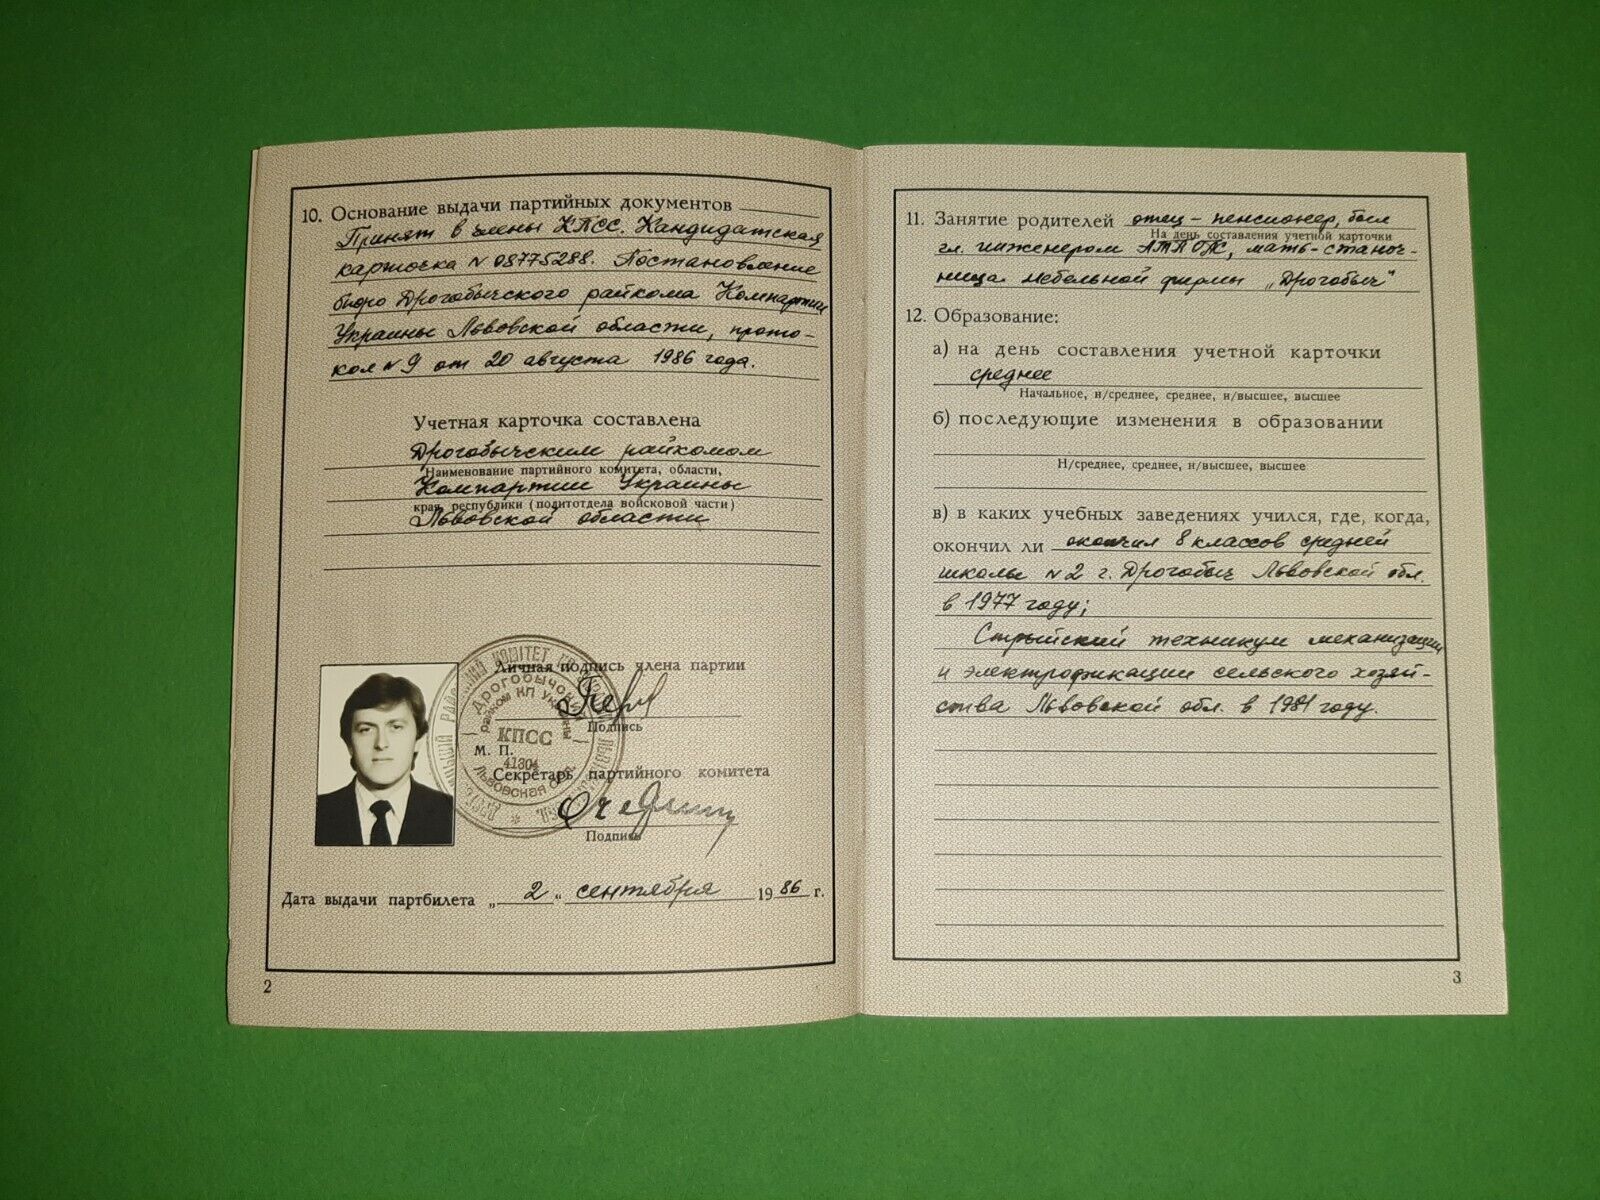 10. Основание выдачи партийных документов
Принят в члены КПСС. Кандидатская
карточка № 08775288. Постановление
бюро Дрогобычского райкома Компартии
Украины Львовской области, прото-
кол № 9 от 20 августа 1986 года.
Учетная карточка составлена
Дрогобычским райкомом
Наименование партийного комитета, области,
Компартии Украины
края, республики (политотдела войсковой части)
Львовской области
Личная подпись члена партии
Подпись
Дрогобычский
райком КП Украины
КПСС
М. П.
41304
Львовская обл.
Секретарь партийного комитета
Подпись
Дата выдачи партбилета „ 2 “ сентября 1986 г.
2
11. Занятие родителей отец - пенсионер, был
На день составления учетной карточки
гл. инженером АТП ОЖ, мать - станоч-
ница мебельной фирмы „Дрогобыч"
12. Образование:
а) на день составления учетной карточки
среднее
Начальное, н/среднее, среднее, н/высшее, высшее
б) последующие изменения в образовании
Н/среднее, среднее, н/высшее, высшее
в) в каких учебных заведениях учился, где, когда,
окончил ли окончил 8 классов средней
школы № 2 г. Дрогобыч Львовской обл.
в 1977 году;
Стрыйский техникум механизации
и электрофикации сельского хозяй-
ства Львовской обл. в 1981 году.
3